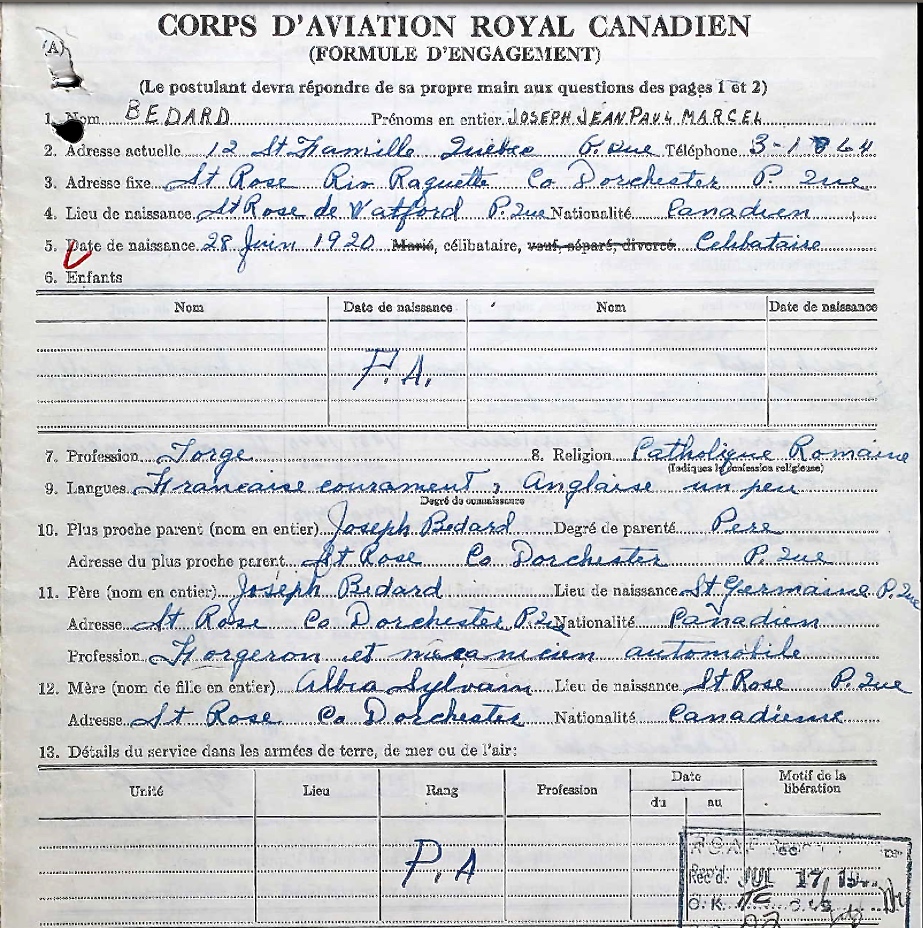 CORPS D'AVIATION ROYAL CANADIEN
(FORMULE D'ENGAGEMENT)
(A)
(Le postulant devra répondre de sa propre main aux questions des pages 1 et 2)
1. Nom BEDARD Prénoms en entier JOSEPH JEAN PAUL MARCEL
2. Adresse actuelle 12 St Famille Québec P. Que Téléphone
3. Adresse fixe St Rose Riv. Raquette Co Dorchester P. Que
4. Lieu de naissance St Rose de Watford P. Que Nationalité Canadien
5. Date de naissance 28 Juin 1920 Marié, célibataire, veuf, séparé, divorcé. Celibataire
6. Enfants
Nom Date de naissance Nom Date de naissance
P.A.
7. Profession Forge 8. Religion Catholique Romaine
(Indiquez la confession religieuse)
9. Langues Francaise courament, Anglaise un peu
Degré de connaissance
10. Plus proche parent (nom en entier) Joseph Bedard Degré de parenté Pere
Adresse du plus proche parent St Rose Co Dorchester P. Que
11. Père (nom en entier) Joseph Bedard Lieu de naissance St Germaine P. Que
Adresse St Rose Co Dorchester P. Que Nationalité Canadien
Profession Forgeron et mecanicien automobile
12. Mère (nom de fille en entier) Sylvain Lieu de naissance St Rose P. Que
Adresse St Rose Co Dorchester Nationalité Canadienne
13. Détails du service dans les armées de terre, de mer ou de l'air:
Unité Lieu Rang Profession Date Motif de la libération
du au
P.A
R.C.A.F.
Rec'd. JUL 17
O.K.